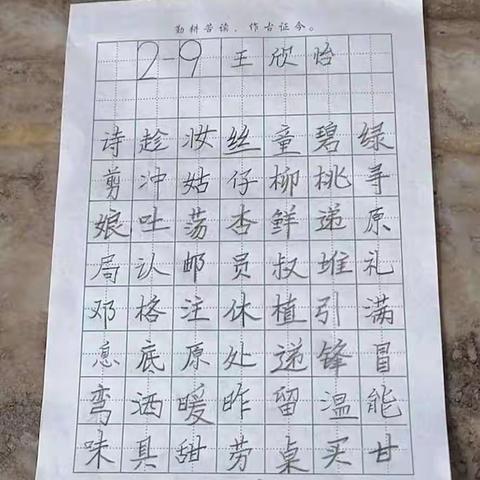 勤耕苦读，作古证今。
2-9 王欣怡
诗趁妆丝童碧绿
剪冲姑仔柳桃寻
娘吐荡杏鲜递原
局认邮员叔堆礼
邓格注休植引满
息底原处递锋冒
弯洒暖昨留温能
味具甜劳桌买甘